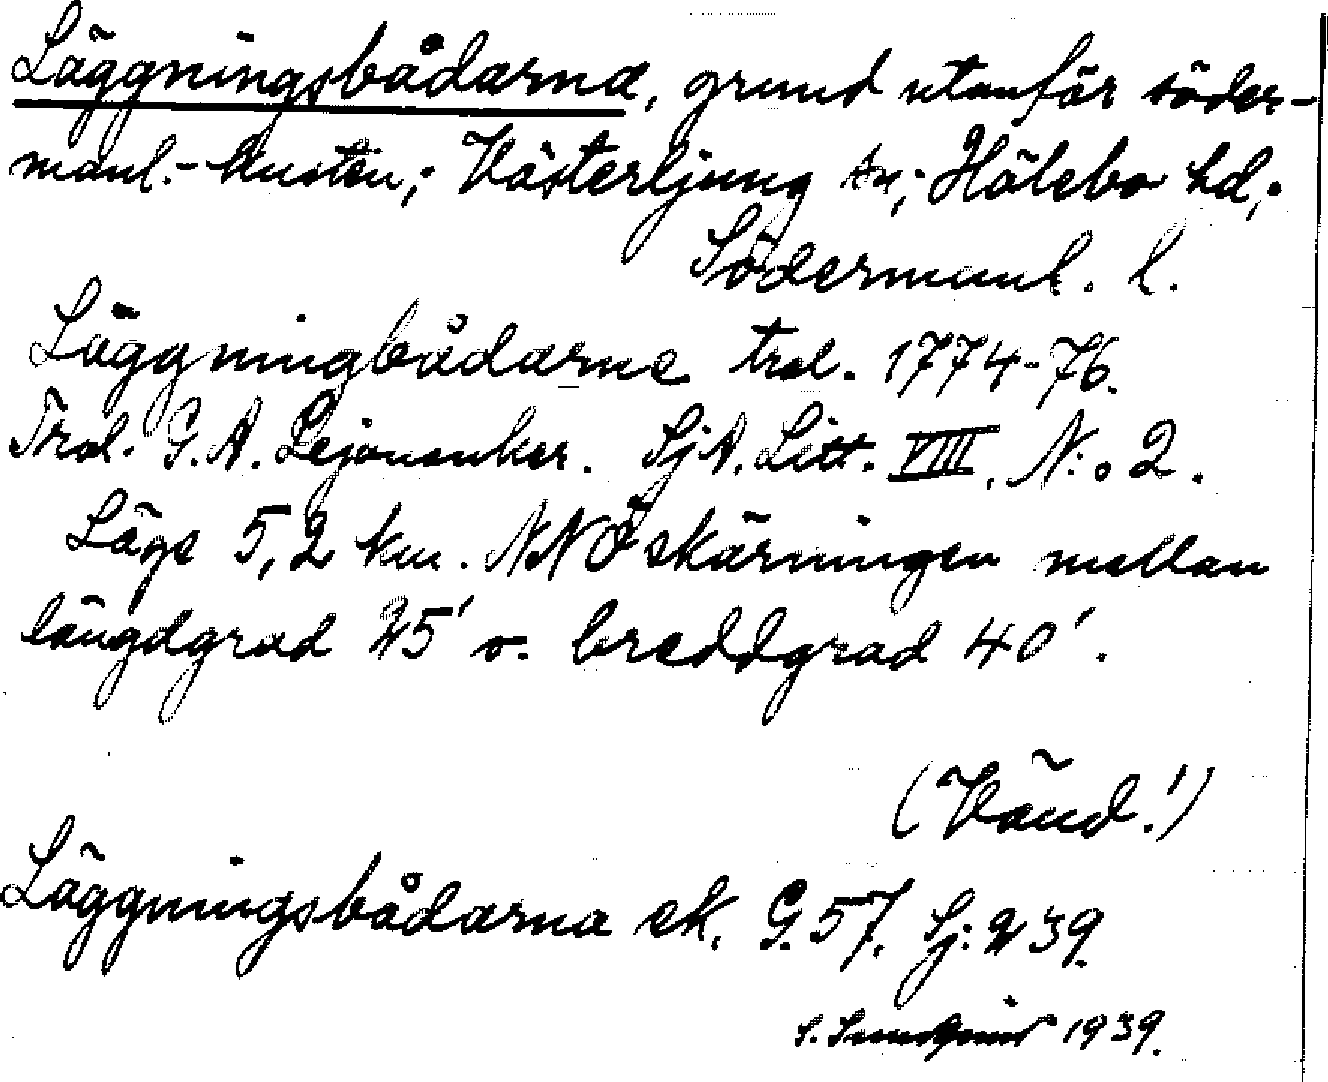 Läggningsbådarna, grund utanför söder-
manl.-kusten; Västerljung sn; Hölebo hd;
Södermanl. l.
Läggningbådarne trol. 1774-76.
Trol. G. A. Lejonanker. SjA. Litt. VIII. N:o 2.
Läge 5,2 km. NNO skärningen mellan
längdgrad 25' o. breddgrad 40'.
(Vänd!)
Läggningsbådarna ek. G. 57. Sj: 239.
S. Sundqvist 1939.